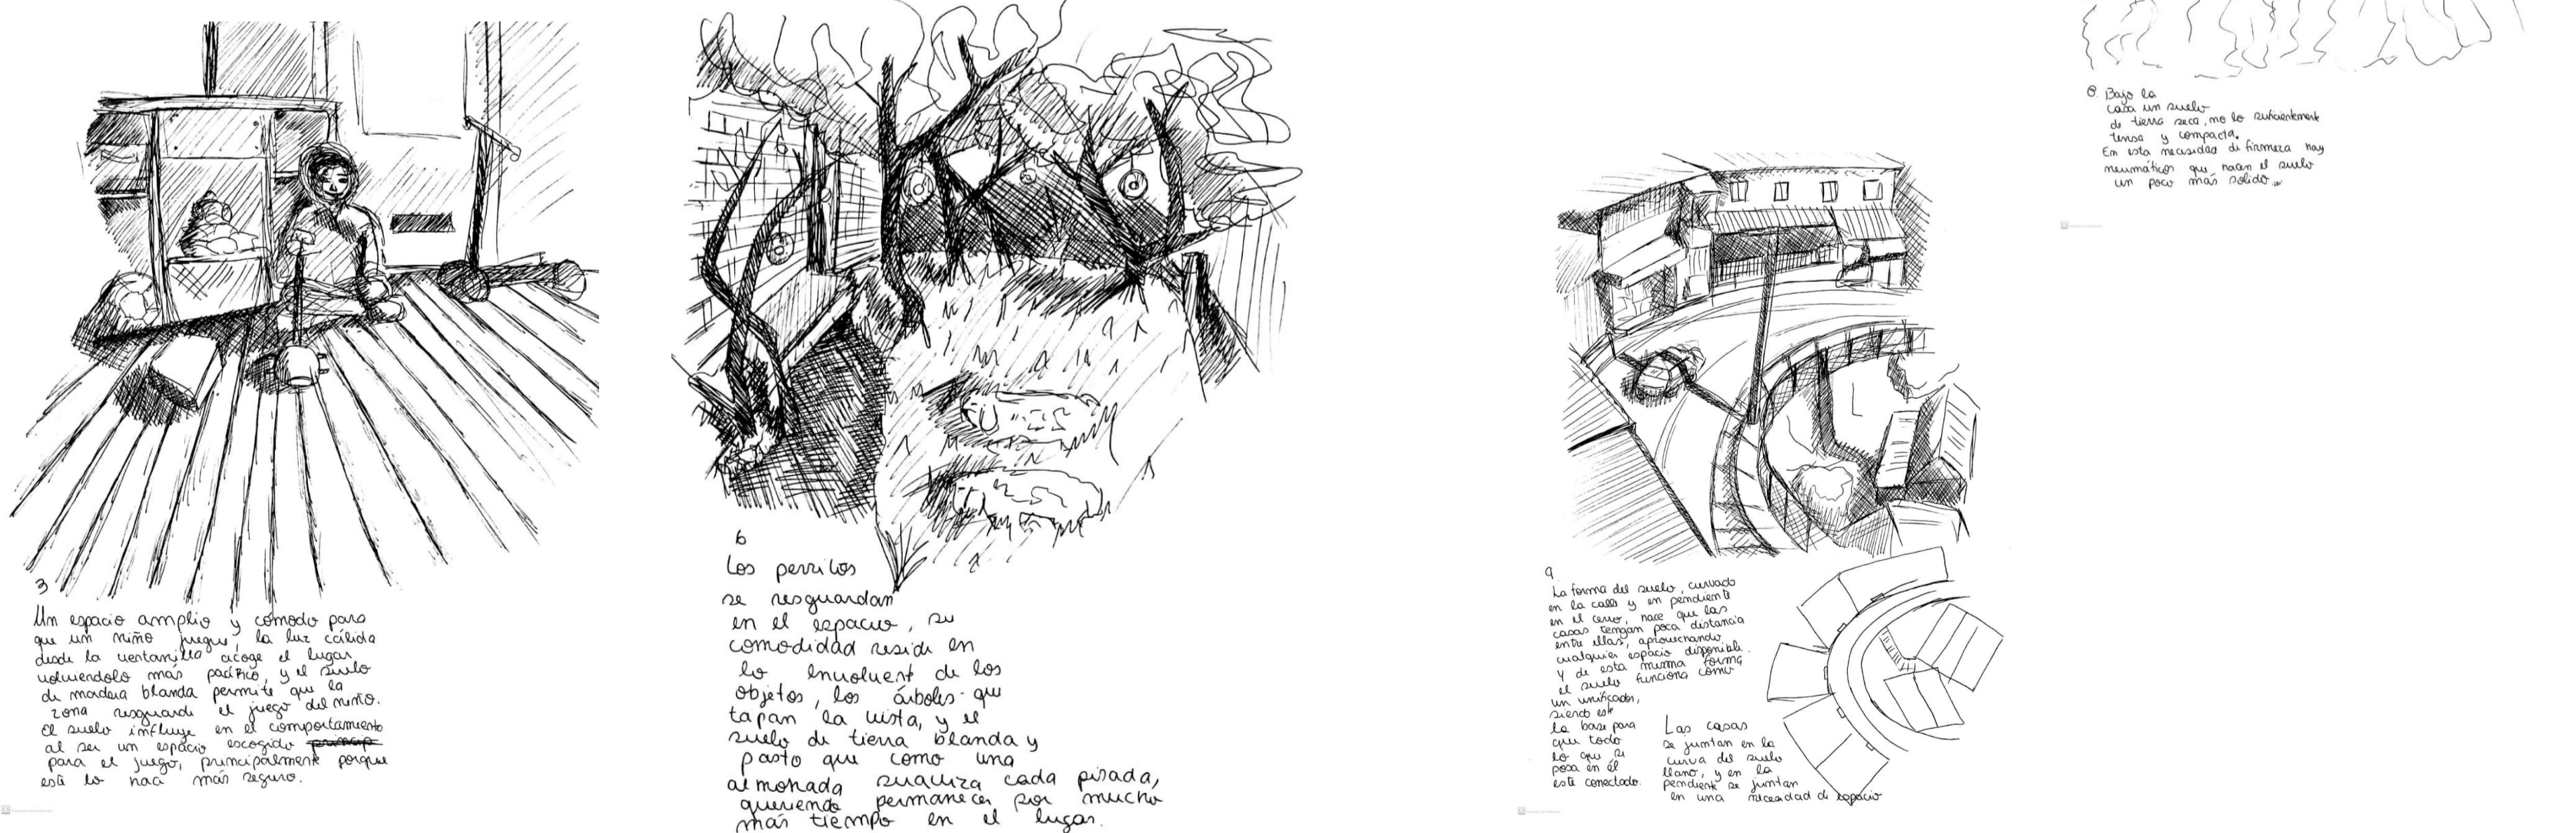 3
Un espacio amplio y cómodo para
que un niño juegue, la luz cálida
desde la ventanilla acoge el lugar
volviendolo más pacífico, y el suelo
de madera blanda permite que la
zona resguarde el juego del niño.
El suelo influye en el comportamiento
al ser un espacio escogido princip
para el juego, principalmente porque
este lo hace más seguro.
6
Los perritos
se resguardan
en el espacio, su
comodidad reside en
lo envolvent de los
objetos, los árboles que
tapan la vista, y el
suelo de tierra blanda y
pasto que como una
almohada suaviza cada pisada,
queriendo permanecer por mucho
más tiempo en el lugar.
9
La forma del suelo, curvado
en la calle y en pendiente
en el cerro, hace que las
casas tengan poca distancia
entre ellas, aprovechando
cualquier espacio disponible.
Y de esta misma forma
el suelo funciona como
un unificador,
siendo este
la base para
que todo
lo que se
posa en él
este conectado.
Las casas
se juntan en la
curva del suelo
llano, y en la
pendiente se juntan
en una necesidad de espacio
8. Bajo la
casa un suelo
de tierra seca, no lo suficientemente
tensa y compacta.
En esta necesidad de firmeza hay
neumáticos que hacen el suelo
un poco más solido.